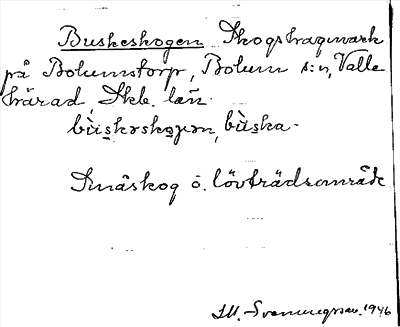 Buskeskogen Skogshagmark
på Bolumstorp, Bolum s:n, Valle
härad, Skb. län.
bu̇skəskoɡən, bu̇ska.
Småskog o. lövträdsområde
M. Svenungsson. 1946